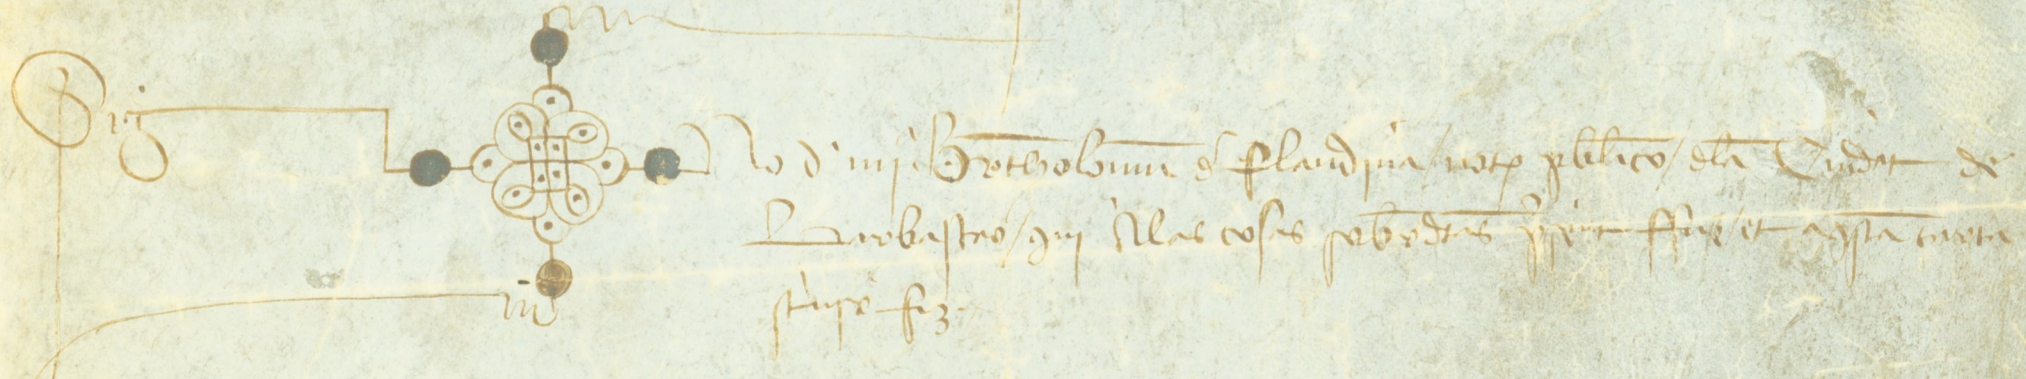 Sig no d mi Bertholomeu d Flandina notr publico dla Ciudat de
Barbastro qui a las cosas sobredtas psent fue et aqsta carta
scriuyr fiz.